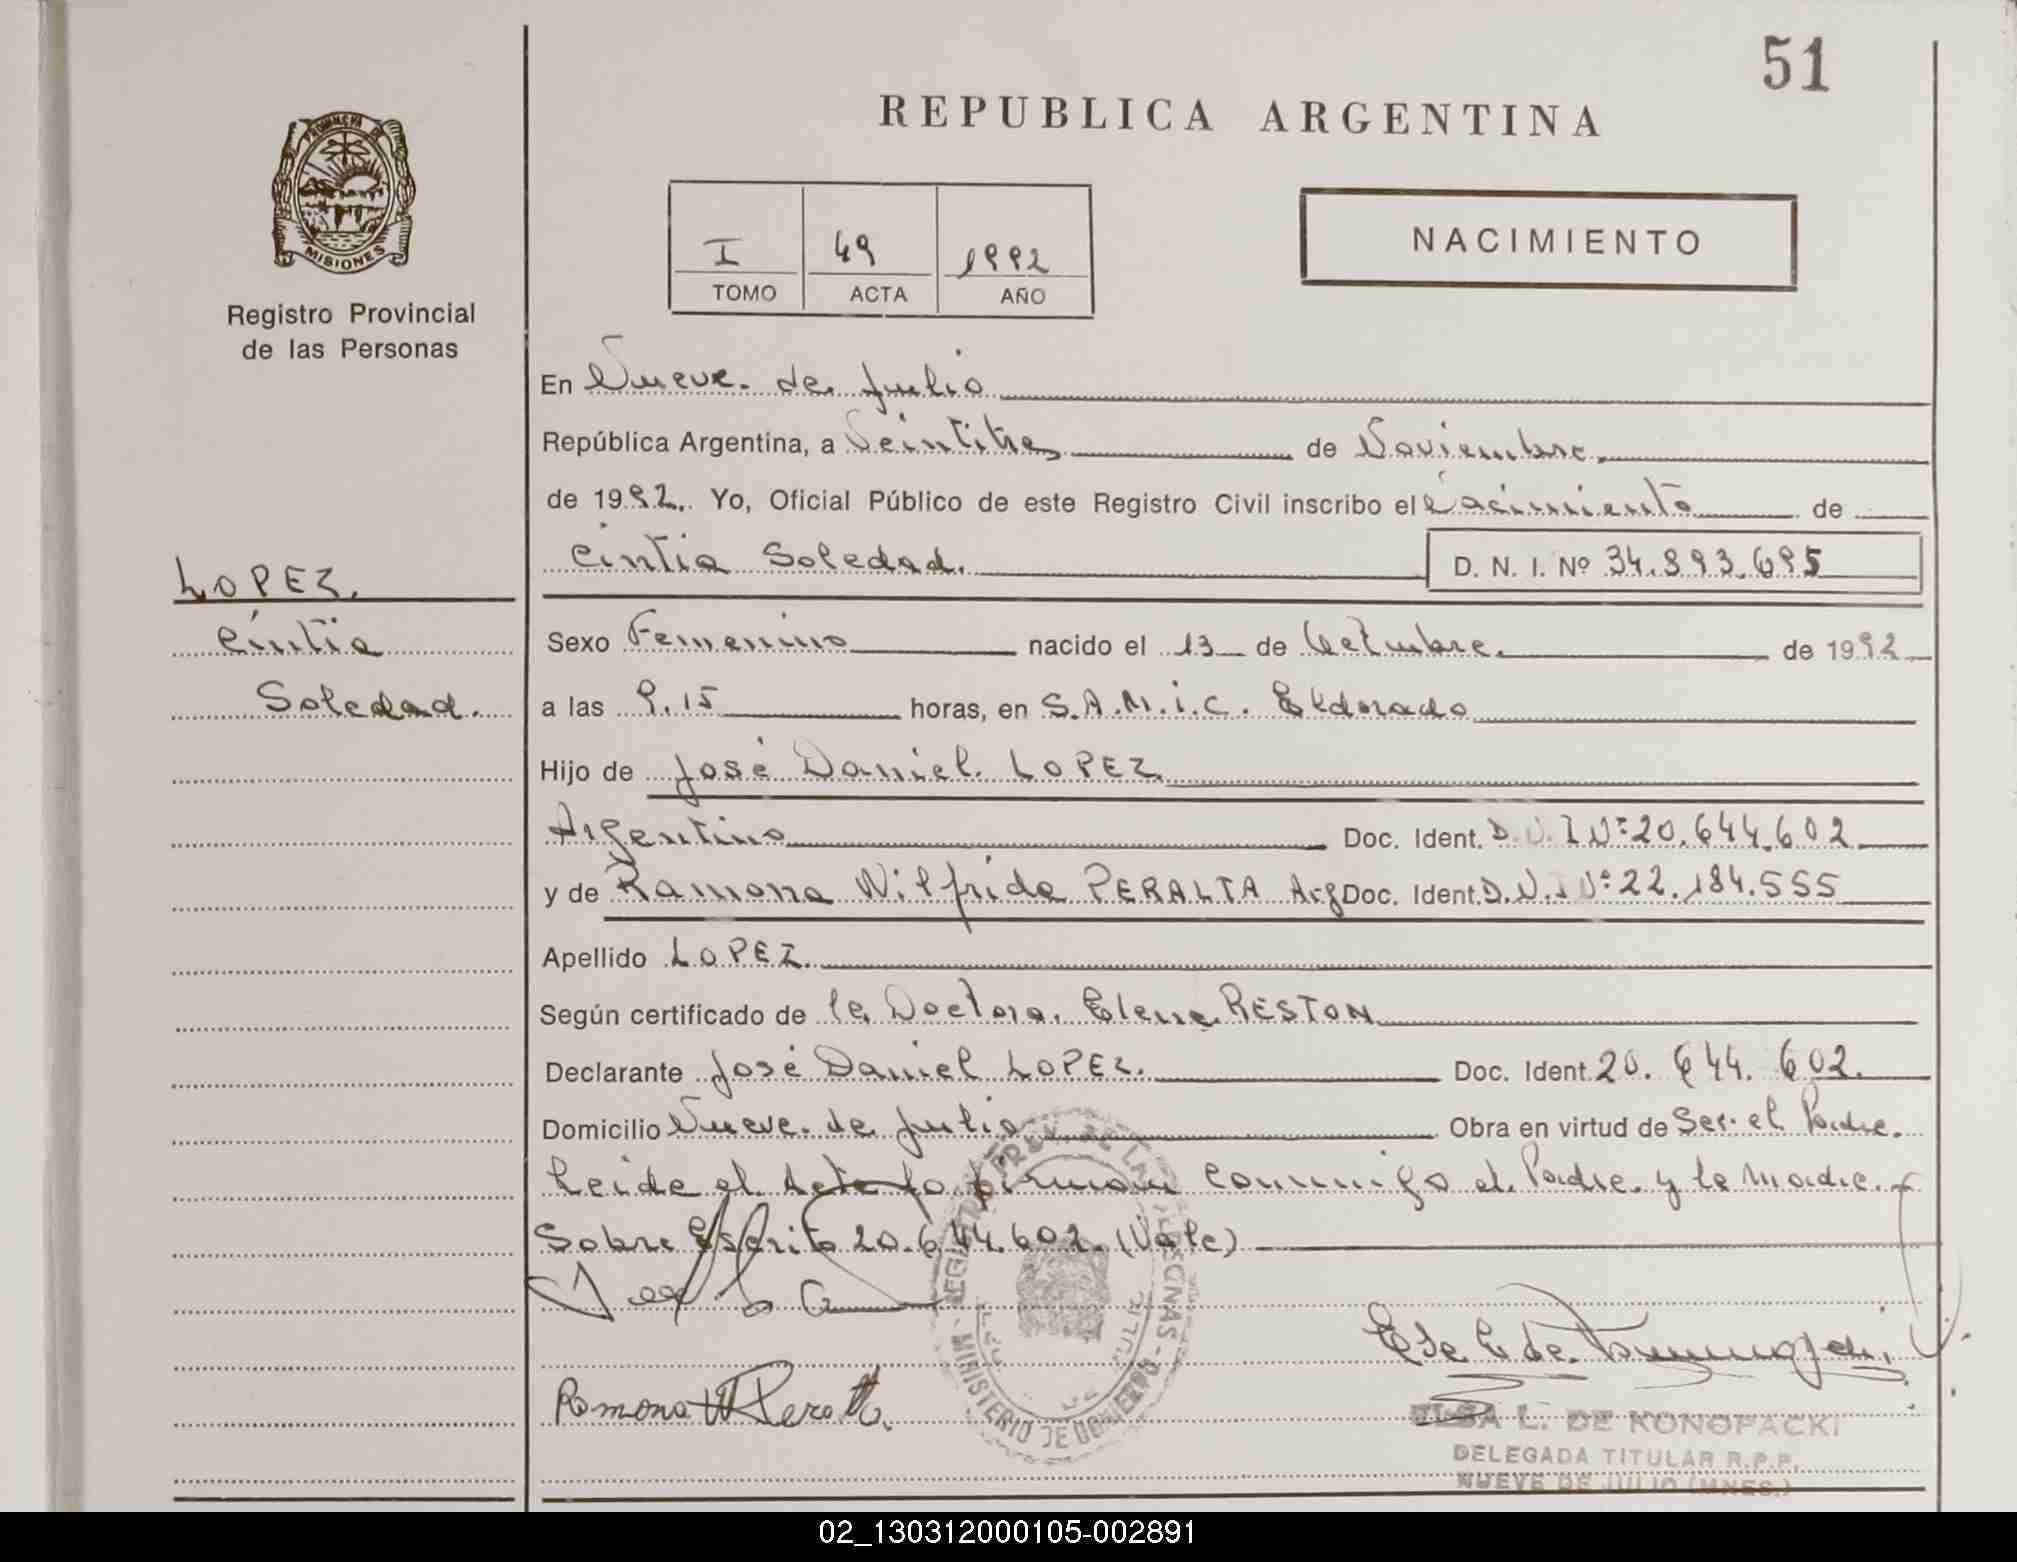 51
REPUBLICA ARGENTINA
PROVINCIA DE
MISIONES
Registro Provincial
de las Personas
I 49 1992
TOMO ACTA AÑO
NACIMIENTO
En Nueve de Julio
República Argentina, a Veintitres de Noviembre
de 1992. Yo, Oficial Público de este Registro Civil inscribo el Nacimiento de
Cintia Soledad. D. N. I. Nº 34.893.695
LOPEZ.
Cintia
Soledad.
Sexo Femenino nacido el 13 de Octubre. de 1992
a las 9.15 horas, en S.A.M.i.C. Eldorado
Hijo de José Daniel LOPEZ
Argentino Doc. Ident. D.N.I Nº 20.644.602
y de Ramona Wilfrida PERALTA Arg Doc. Ident. D.N.I Nº 22.184.555
Apellido LOPEZ.
Según certificado de la Doctora. Elena RESTON
Declarante José Daniel LOPEZ. Doc. Ident. 20.644.602.
Domicilio Nueve de Julio Obra en virtud de Ser el Padre.
Leida el Acta la firman conmigo el Padre y la Madre.
Sobre Escrito 20.644.602. (Vale)
Ramona W Peralta.
MINISTERIO DE GOBIERNO
ELSA L. DE KONOPACKI
DELEGADA TITULAR R.P.P.
NUEVE DE JULIO (MNES.)
02_130312000105-002891